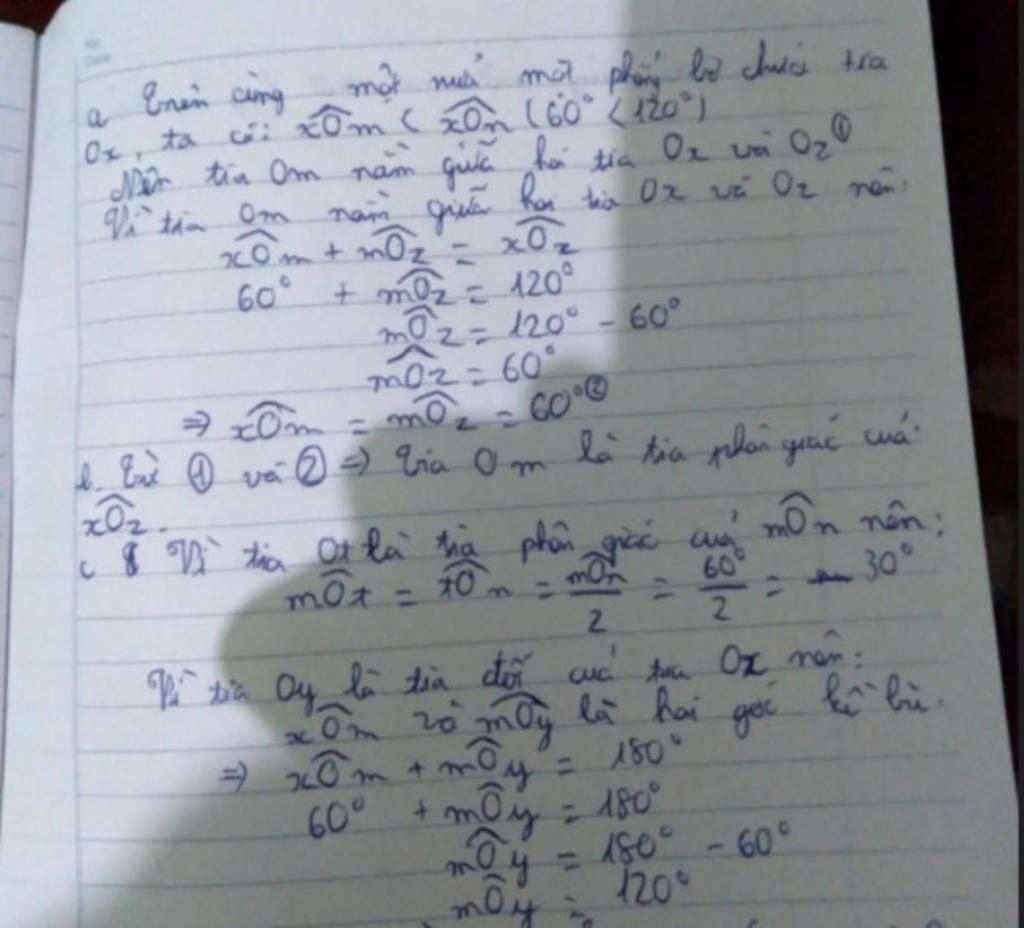 a Trên cùng một nửa mặt phẳng bờ chứa tia
Ox, ta có: xÔm < xÔn (60° < 120°)
Nên tia Om nằm giữa hai tia Ox và Oz ①
Vì tia Om nằm giữa hai tia Ox và Oz nên:
xÔm + mÔz = xÔz
60° + mÔz = 120°
mÔz = 120° - 60°
mÔz = 60°
⇒ xÔm = mÔz = 60° ②
b. Từ ① và ② ⇒ Tia Om là tia phân giác của
xÔz.
c Vì tia Ot là tia phân giác của mÔn nên:
mÔt = tÔn = mÔn/2 = 60°/2 = 30°
Vì tia Oy là tia đối của tia Ox nên:
xÔm và mÔy là hai góc kề bù.
⇒ xÔm + mÔy = 180°
60° + mÔy = 180°
mÔy = 180° - 60°
mÔy = 120°